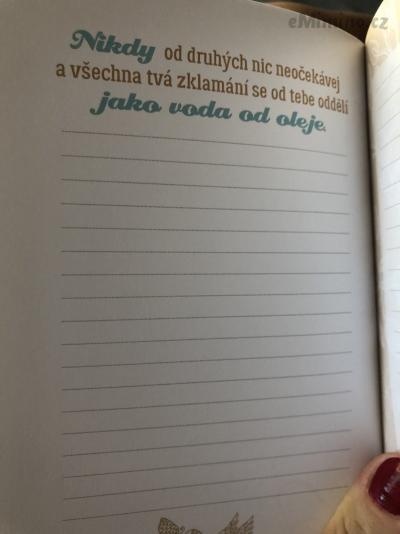 eMimino.cz
Nikdy od druhých nic neočekávej
a všechna tvá zklamání se od tebe oddělí
jako voda od oleje.